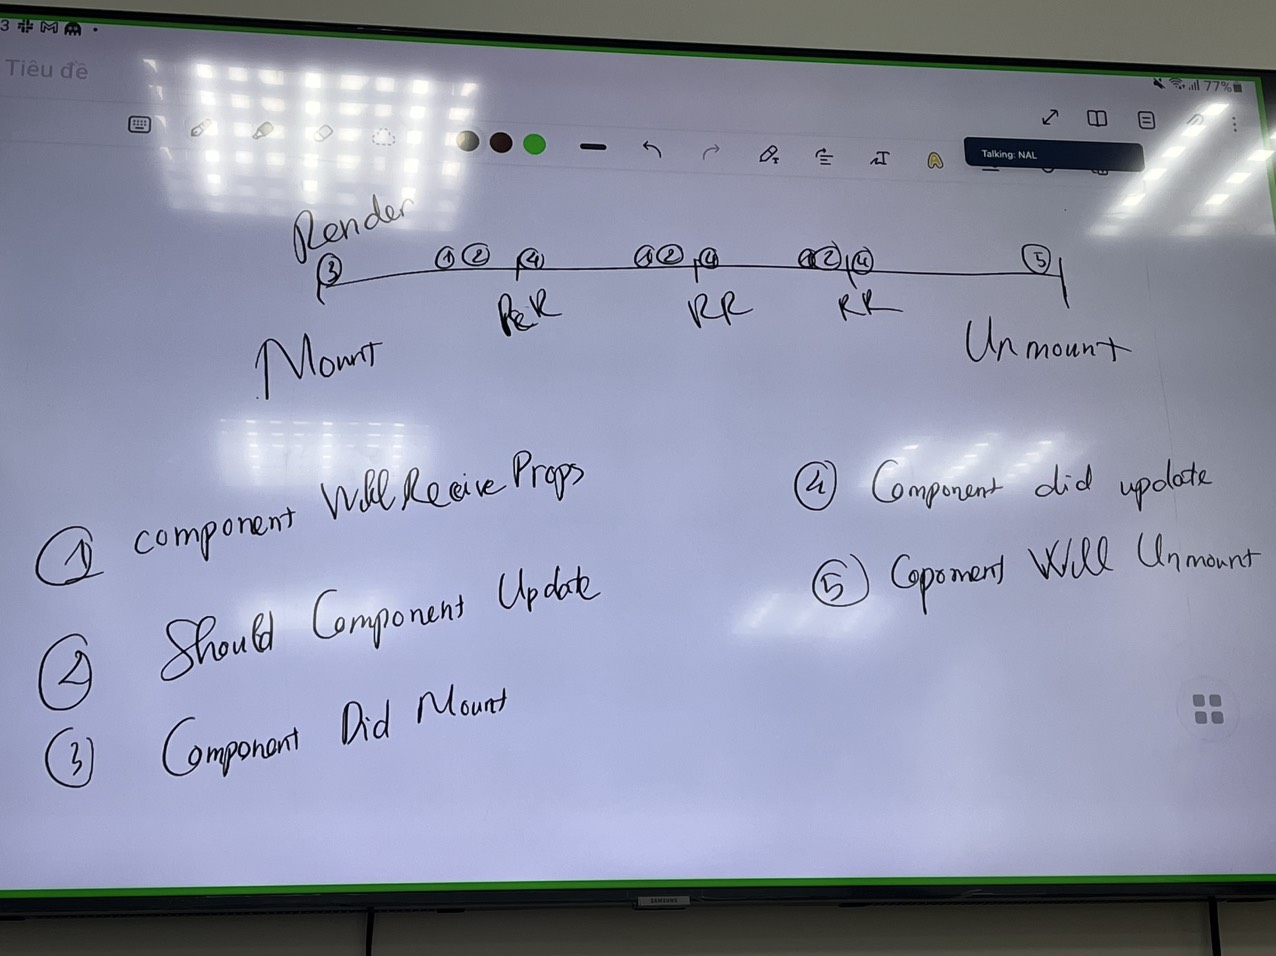 3
Tiêu đề
77%
Talking: NAL
Render
3 1 2 4 1 2 4 1 2 4 5
RR RR
Mount
Unmount
1 component Will Receive Props
2 Should Component Update
3 Component Did Mount
4 Component did update
5 Coponent Will Unmount
SAMSUNG